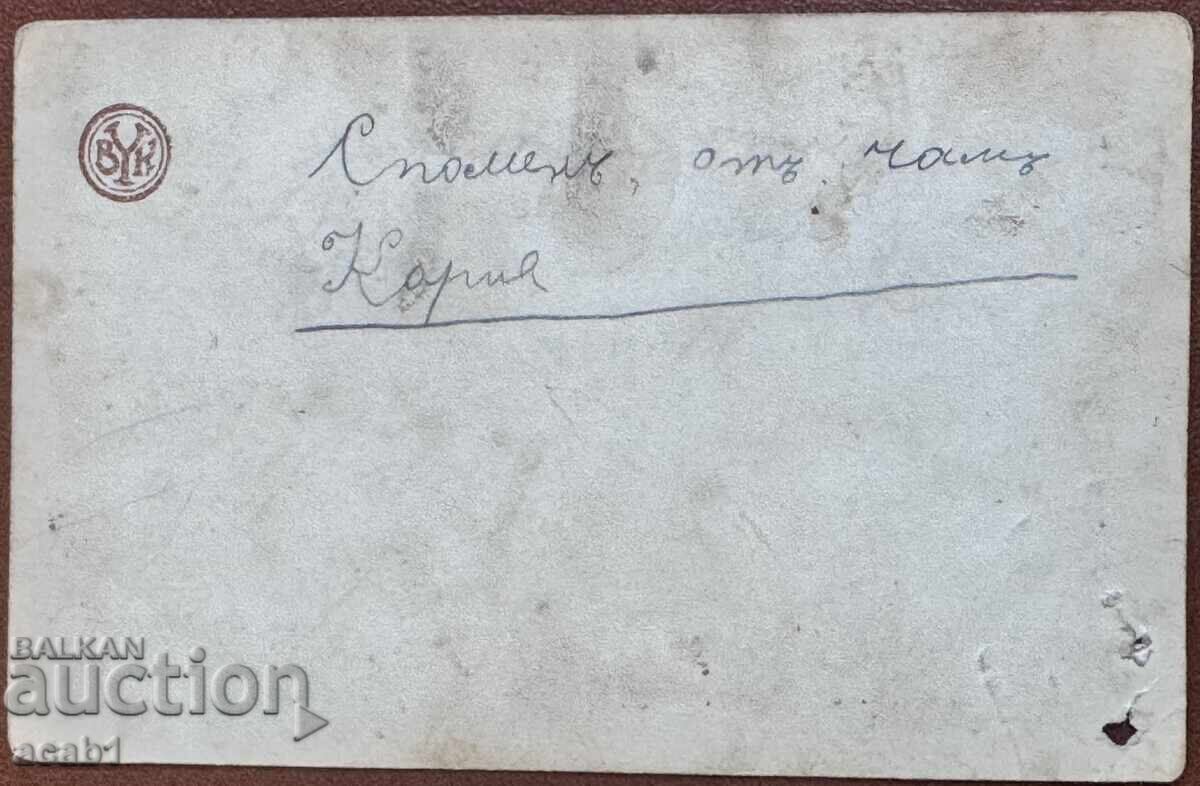 BYK
Споменъ, отъ чамъ
Кория
BALKAN
auction
acab1